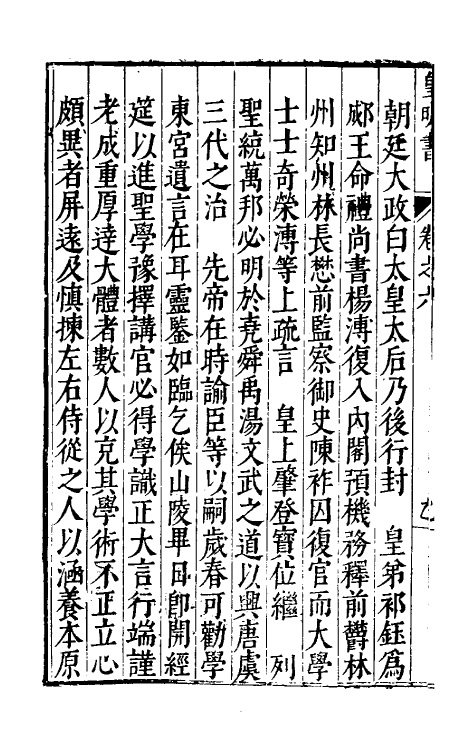 皇明書
卷之六
朝廷大政白太皇太后乃後行封　皇弟祁鈺爲
郕王命禮尚書楊溥復入內閣預機務釋前欝林
州知州林長懋前監察御史陳祚囚復官而大學
士士奇榮溥等上疏言　皇上肇登寶位繼　列
聖統萬邦必明於堯舜禹湯文武之道以興唐虞
三代之治　先帝在時諭臣等以嗣歲春可勸學
東宮遺言在耳靈鑒如臨乞俟山陵畢日卽開經
筵以進聖學豫擇講官必得學識正大言行端謹
老成重厚達大體者數人以克其學術不正立心
頗異者屏遠及慎揀左右侍從之人以涵養本原